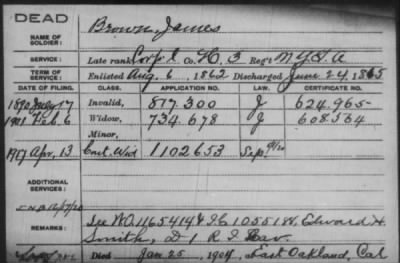 DEAD
NAME OF SOLDIER:
Brown, James
SERVICE:
Late rank Corp'l Co. H. 3 Reg't N.Y.L.A
TERM OF SERVICE:
Enlisted Aug. 6, 1862 Discharged June 24, 1865
DATE OF FILING. CLASS. APPLICATION NO. LAW. CERTIFICATE NO.
1890 July 17 Invalid, 817.300 J 624.965-
1901 Feb. 6 Widow, 734.678 J 608.564
Minor,
1917 Apr. 13 Cont. Wid 1102653 Sep. 9/20
ADDITIONAL SERVICES:
REMARKS:
See WO 1165414 & IC 1055184, Edward H.
Smith, D 1 R I Cav.
Died Jan. 25, 1904, East Oakland, Cal